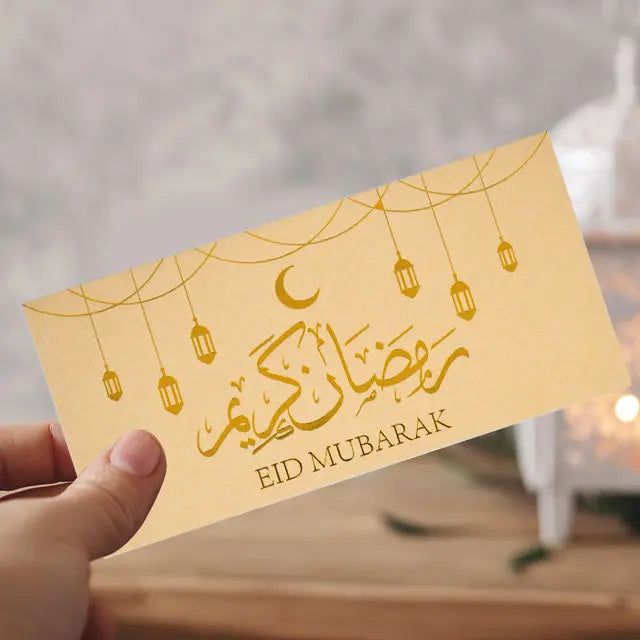 رمضان كريم
EID MUBARAK